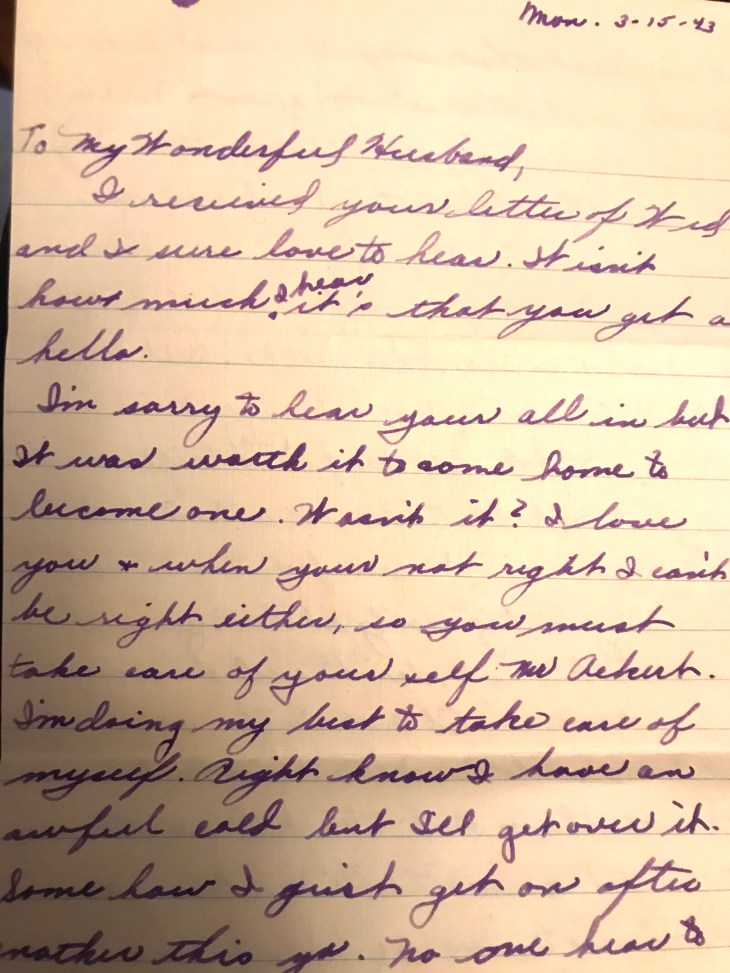 Mon. 3-15-43
To My Wonderful Husband,
I received your letter of Wed
and I sure love to hear. It isn't
how much I hear it's that you get a
hello.
I'm sorry to hear your all in but
It was worth it to come home to
become one. Wasn't it? I love
you + when your not right I can't
be right either, so you must
take care of your self Mr Ackert.
I'm doing my best to take care of
myself. Right know I have an
awful cold but I'll get over it.
Some how I just get on after
nother this yr. No one hear to